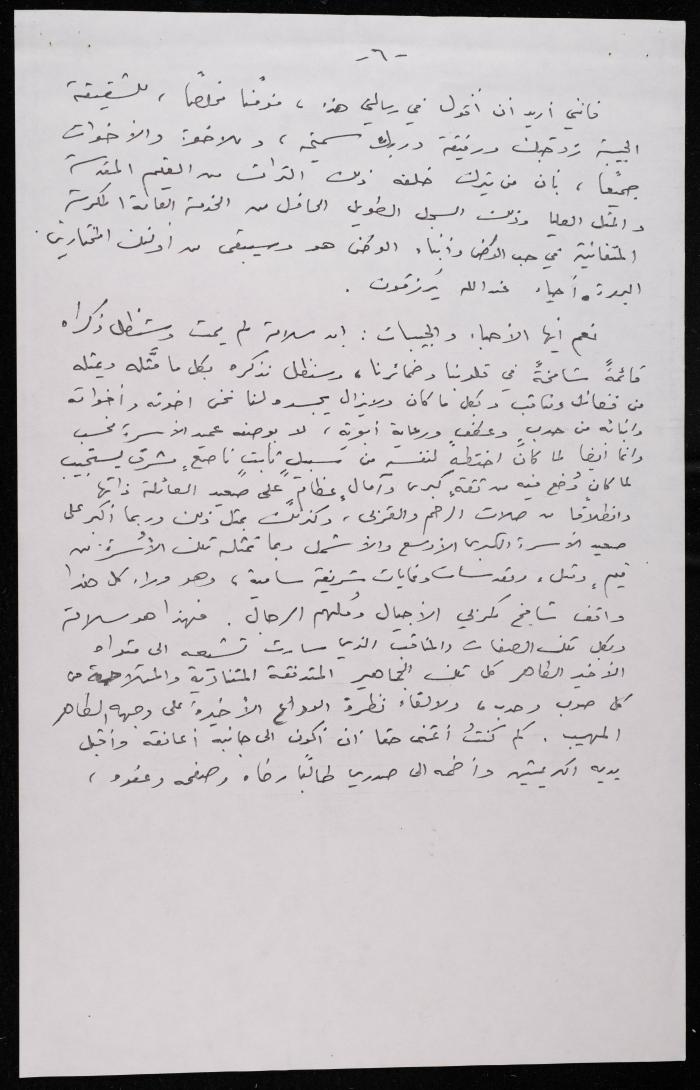 -٦-
فانني أريد أن أقول في رسالتي هذه ، مؤمنًا مخلصًا ، للشقيقة
الحبيبة زوجتك ورفيقة دربك سميحه ، وللاخوة والأخوات
جميعًا ، بأن من يترك خلفه ذلك التراث من القيم المقدسة
والمثل العليا وذلك السجل الطويل الحافل من الخدمة العامة المكرسة
المتفانية في حب الوطن وأبناء الوطن هو وسيبقى من أولئك المختارين
البررة أحياء عند الله يُرزقون .
نعم أيها الأحباء والحبيبات : ابو سلامة لم يمت وستظل ذكراه
قائمةً شامخةً في قلوبنا وضمائرنا ، وسنظل نذكره بكل ما مثَّله ويمثله
من فضائل ومناقب وبكل ما كان ولا يزال يجسده لنا نحن اخوته وأخواته
وابنائه من حدبٍ وعطفٍ ورعاية أبوية ، لا بوصفه عميد الأسرة فحسب
وانما أيضا لما كان اختطه لنفسه من سبيلٍ ثابتٍ ناصعٍ مشرق يستجيب
لما كان وُضع فيه من ثقةٍ كبرى وآمالٍ عظامٍ على صعيد العائلة ذاتها
وانطلاقا من صلات الرحم والقربى ، وكذلك بمثل ذلك وربما أكبر على
صعيد الأسرة الكبرى الأوسع والأشمل وبما تمثله تلك الأسرة من
قيمٍ ومثل ومقدسات وغايات شريفة سامية ، وهو وراء كل هذا
واقف شامخ كمربي الأجيال ومُلهم الرجال . فهذا هو سلامة
وبكل تلك الصفات والمناقب الذي سارت تشيعه الى مثواه
الأخير الطاهر كل تلك الجماهير المتدفقة المتنادية والمتلاحمة من
كل صوب وحدب ، ولالقاء نظرة الوداع الأخيرة على وجهه الطاهر
المهيب . كم كنتُ أتمنى حقا أن أكون الى جانبه أعانقه وأقبل
يديه الكريمتين وأضمه الى صدري طالبًا رضاه وصفحه وعفوه ،